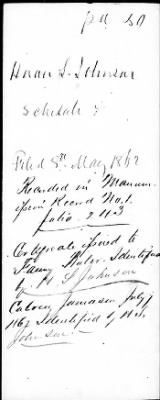 pd 50
Hiram S. Johnson
Schedule
Filed 8th May 1862
Recorded in Manum-
ission Record No. 1.
folio 243
Certificate issued to
Fanny Identified
by H S Johnson
July
1862 Identified by H. S.
Johnson